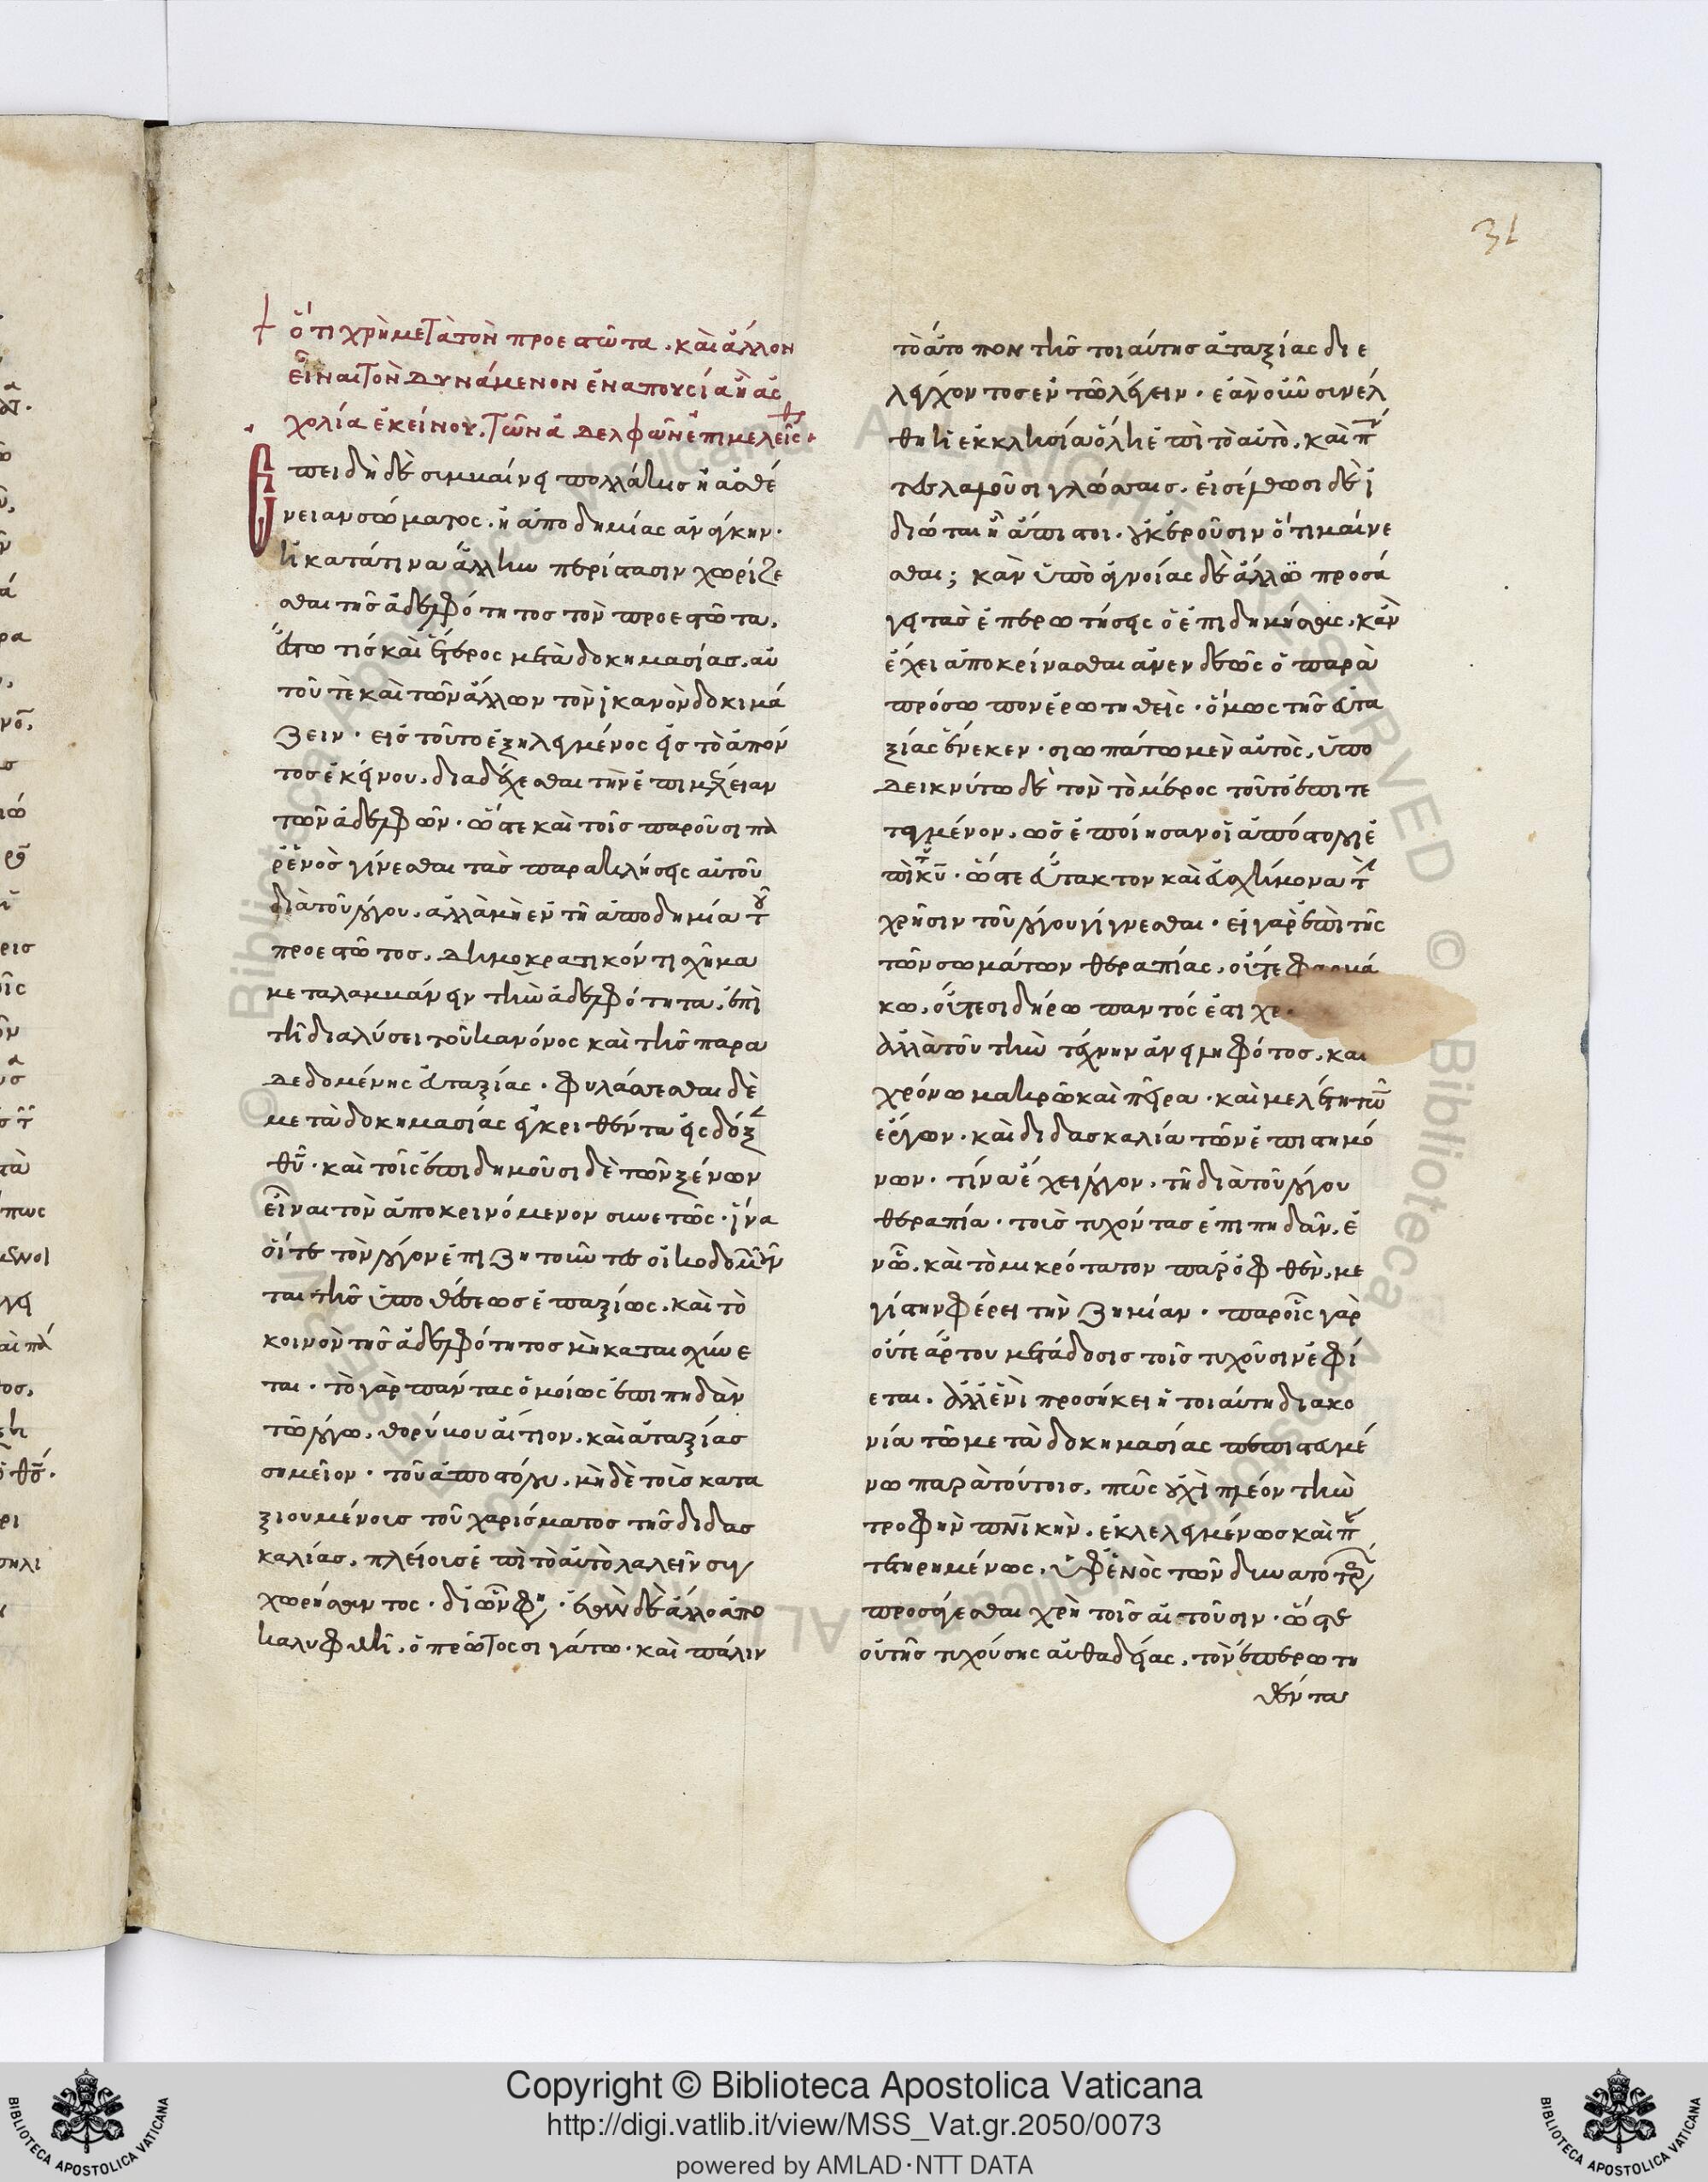 31
ὅτι χρὴ μετὰ τὸν προεστῶτα. καὶ ἄλλον
εἶναι τὸν δυνάμενον ἐν ἀπουσία ἢ ἀσ
χολία ἐκείνου. τῶν ἀδελφῶν ἐπιμελεῖσθ
Ἐπειδὴ δὲ συμβαίνει πολλάκις ἢ ἀσθέ
νειαν σώματος. ἢ ἀποδημίας ἀνάγκην.
ἢ κατά τινα ἄλλην περίστασιν χωρίζε
σθαι τῆς ἀδελφότητος τὸν προεστῶτα.
ἔστω τίς καὶ ἕτερος μετὰ δοκημασίας. αὐ
τοῦ τὲ καὶ τῶν ἄλλων τὸν ἱκανὸν δοκιμά
ζειν. εἰς τοῦτο ἐξηλεγμένος εἰς τὸ ἀπόν
τος ἐκείνου. διαδέχεσθαι τὴν ἐπιμέλειαν
τῶν ἀδελφῶν. ὥστε καὶ τοῖς παροῦσι πα
ρ' ἑνὸς γίνεσθαι τὰς παρακλήσεις αὐτοῦ
διὰ τοῦ λόγου. ἀλλὰ μὴ ἐν τῆ ἀποδημία τ
προεστῶτος. δημοκρατικόν τι σχῆμα
μεταλαμβάνειν τὴν ἀδελφότητα. ἐπὶ
τῆ διαλύσει τοῦ κανόνος καὶ τῆς παρα
δεδομένης ἀταξίας. φυλάττεσθαι δὲ
μετὰ δοκημασίας ἐγκριθέντα εἰς δόξ
θῦ. καὶ τοῖς ἐπιδημοῦσι δὲ τῶν ξένων
εἶναι τὸν ἀποκρινόμενον συνετῶς. ἵνα
οἵ τε τὸν λόγον ἐπιζητοῦντες οἰκοδομῶν
ται τῆς ὑποθέσεως ἐπαξίως. καὶ τὸ
κοινὸν τῆς ἀδελφότητος μὴ καταισχύνε
ται. τὸ γὰρ πάντας ὁμοίως ἐπιπηδὰν
τῶ λόγω. θορύβου αἴτιον. καὶ ἀταξίας
σημεῖον. τοῦ ἀποστόλου. μὴ δὲ τοῖς κατα
ξιουμένοις τοῦ χαρίσματος τῆς διδασ
καλίας. πλείοις ἐπὶ τὸ αὐτὸ λαλεῖν συγ
χωρήσαντος. δι' ὧν φη. ἐὰν δὲ ἄλλο ἀπο
καλυφθῆ. ὁ πρῶτος σιγάτω. καὶ πάλιν
τὸ ἄτοπον τῆς τοιαύτης ἀταξίας διε
λέγχοντος ἐν τῶ λέγειν. ἐὰν οὖν συνέλ
θη ἡ ἐκκλησία ὅλη ἐπὶ τὸ αὐτὸ. καὶ π
τες λαλοῦσι γλώσσαις. εἰσέλθωσι δὲ ἰ
διῶται ἢ ἄπιστοι. οὐκ ἐροῦσιν ὅτι μαίνε
σθαι; κἂν ὑπὸ ἀγνοίας δὲ ἄλλω προσά
γη τὰς ἐπερωτήσεις ὁ ἐπιδημήσας. κἂν
ἔχει ἀποκρίνασθαι ἀνενδεῶς ὁ παρὰ
πρόσωπον ἐρωτηθεὶς. ὅμως τῆς εὐτα
ξίας ἕνεκεν. σιωπάτω μὲν αὐτὸς. ὑπο
δεικνύτω δὲ τὸν τὸ μέρος τοῦτο ἐπιτε
ταγμένον. ὡς ἐποίησαν οἱ ἀπόστολοι ἐ
πὶ κῦ. ὥστε εὔτακτον καὶ εὐσχήμονα τ
χρῆσιν τοῦ λόγου γίγνεσθαι. εἰ γὰρ ἐπὶ τῆς
τῶν σωμάτων θεραπίας. οὔτε φαρμά
κω. οὔτε σιδήρω παντός ἐστι χρ
ἀλλὰ τοῦ τὴν τέχνην ἀνειληφότος. και
χρόνω μακρῶ καὶ πείρα. καὶ μελέτη τῶ
ἔργων. καὶ διδασκαλία τῶν ἐπιστημό
νων. τίνα ἔχει λόγον. τῆ διὰ τοῦ λόγου
θεραπία. τοὶς τυχόντας ἐπιπηδᾶν. ἐ
νῶ. καὶ τὸ μικρότατον παροφθὲν. με
γίστην φέρει τὴν ζημίαν. παρ' οἷς γὰρ
οὔτε ἄρτου μετάδοσις τοῖς τυχοῦσιν ἐφί
εται. ἀλλ' ἑνὶ προσήκει ἡ τοιαύτη διακο
νία τῶ μετὰ δοκημασίας πεπιστευμέ
νω παρὰ τούτοις. πῶς οὐχὶ πλέον τὴν
τροφὴν πνικὴν. ἐκλελεγμένως καὶ π
τετηρημένως. ὑφ' ἑνὸς τῶν δυνατοτέρ
προσάγεσθαι χρὴ τοῖς αἰτοῦσιν. ὥστε
οὐ τῆς τυχούσης αὐθαδείας. τὸν ἐπερωτη
θέντα
Copyright © Biblioteca Apostolica Vaticana
http://digi.vatlib.it/view/MSS_Vat.gr.2050/0073
powered by AMLAD·NTT DATA
BIBLIOTECA APOSTOLICA VATICANA
BIBLIOTECA APOSTOLICA VATICANA